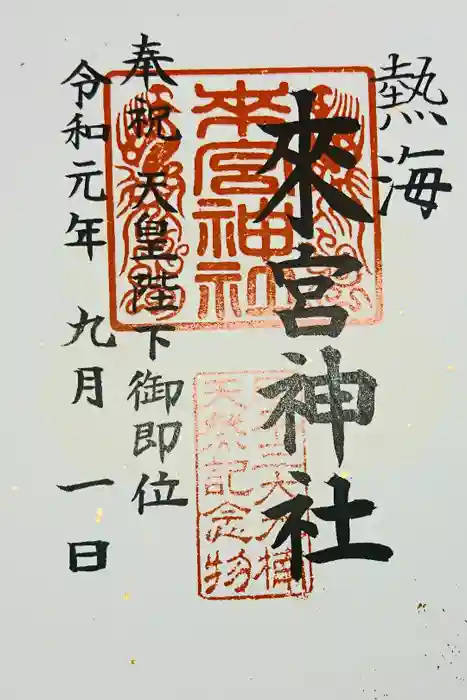 熱海
來宮神社
奉祝 天皇陛下御即位
令和元年 九月 一日
來宮神社
天然記念物